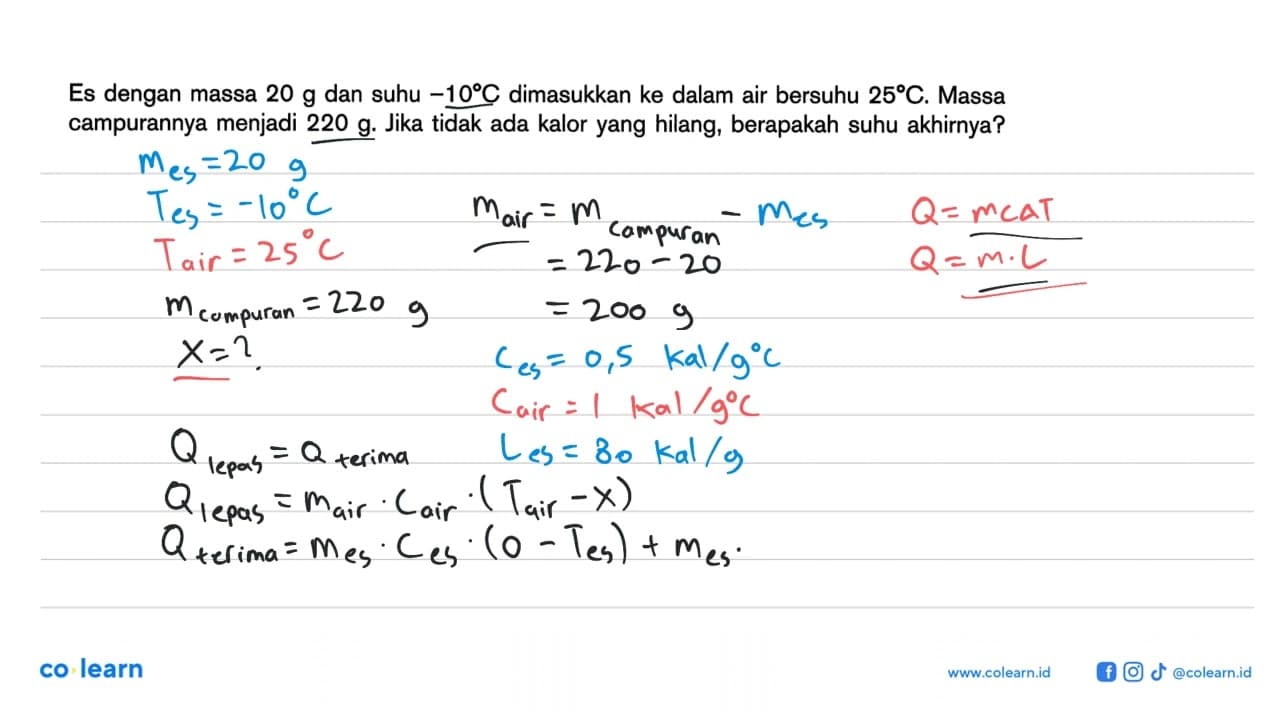 Es dengan massa 20 g dan suhu −10°C dimasukkan ke dalam air bersuhu 25°C. Massa
campurannya menjadi 220 g. Jika tidak ada kalor yang hilang, berapakah suhu akhirnya?
mes = 20 g
Tes = -10°C
Tair = 25°C
mcampuran = 220 g
x = ?
mair = mcampuran - mes
= 220 - 20
= 200 g
Ces = 0,5 kal/g°C
Cair = 1 kal/g°C
Les = 80 kal/g
Q = mcΔT
Q = m.L
Qlepas = Qterima
Qlepas = mair . Cair . (Tair - x)
Qterima = mes . Ces . (0 - Tes) + mes.
co learn
www.colearn.id
@colearn.id